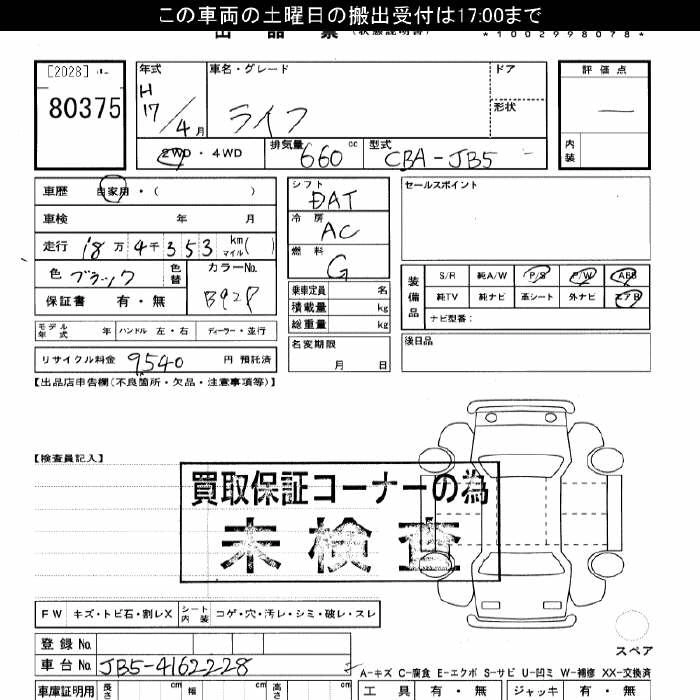 この車両の土曜日の搬出受付は17:00まで
出 品 票 (状態説明書) *1002998078*
[2028]
80375
年式 車名・グレード ドア 評価点
H17/4月 ライフ 形状 —
2WD・4WD 排気量 660 cc 型式 CBA-JB5 内装
車歴 自家用・( ) シフト DAT セールスポイント
車検 年 月 冷房 AC
走行 18万4千353 km マイル( ) 燃料 G
色 ブラック 色替 カラーNo. 乗車定員 名 装備品 S/R 純A/W P/S P/W ABS
保証書 有・無 B92P 積載量 kg 純TV 純ナビ 革シート 外ナビ エアB
総重量 kg ナビ型番:
モデル年式 年 ハンドル 左・右 ディーラー・並行 名変期限 月 日 後日品
リサイクル料金 9540 円 預託済
【出品店申告欄(不良箇所・欠品・注意事項等)】
【検査員記入】
買取保証コーナーの為
未検査
FW キズ・トビ石・割レX シート内装 コゲ・穴・汚レ・シミ・破レ・スレ
登録 No. スペア
車台 No. JB5-4162228
A-キズ C-腐食 E-エクボ S-サビ U-凹ミ W-補修 XX-交換済
車庫証明用 長さ cm 幅 cm 高さ cm 工具 有・無 ジャッキ 有・無